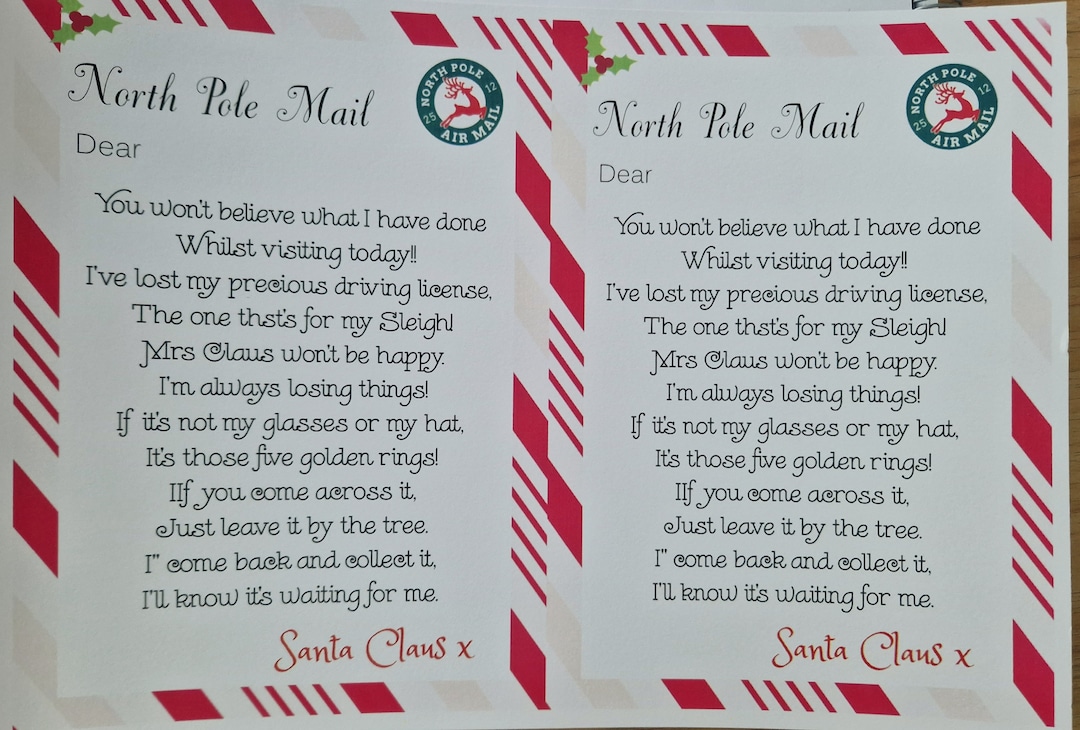 North Pole Mail
NORTH POLE
25 12
AIR MAIL
Dear
You won't believe what I have done
Whilst visiting today!!
I've lost my precious driving license,
The one thst's for my Sleigh!
Mrs Claus won't be happy.
I'm always losing things!
If it's not my glasses or my hat,
It's those five golden rings!
IIf you come across it,
Just leave it by the tree.
I" come back and collect it,
I'll know it's waiting for me.
Santa Claus x
North Pole Mail
NORTH POLE
25 12
AIR MAIL
Dear
You won't believe what I have done
Whilst visiting today!!
I've lost my precious driving license,
The one thst's for my Sleigh!
Mrs Claus won't be happy.
I'm always losing things!
If it's not my glasses or my hat,
It's those five golden rings!
IIf you come across it,
Just leave it by the tree.
I" come back and collect it,
I'll know it's waiting for me.
Santa Claus x